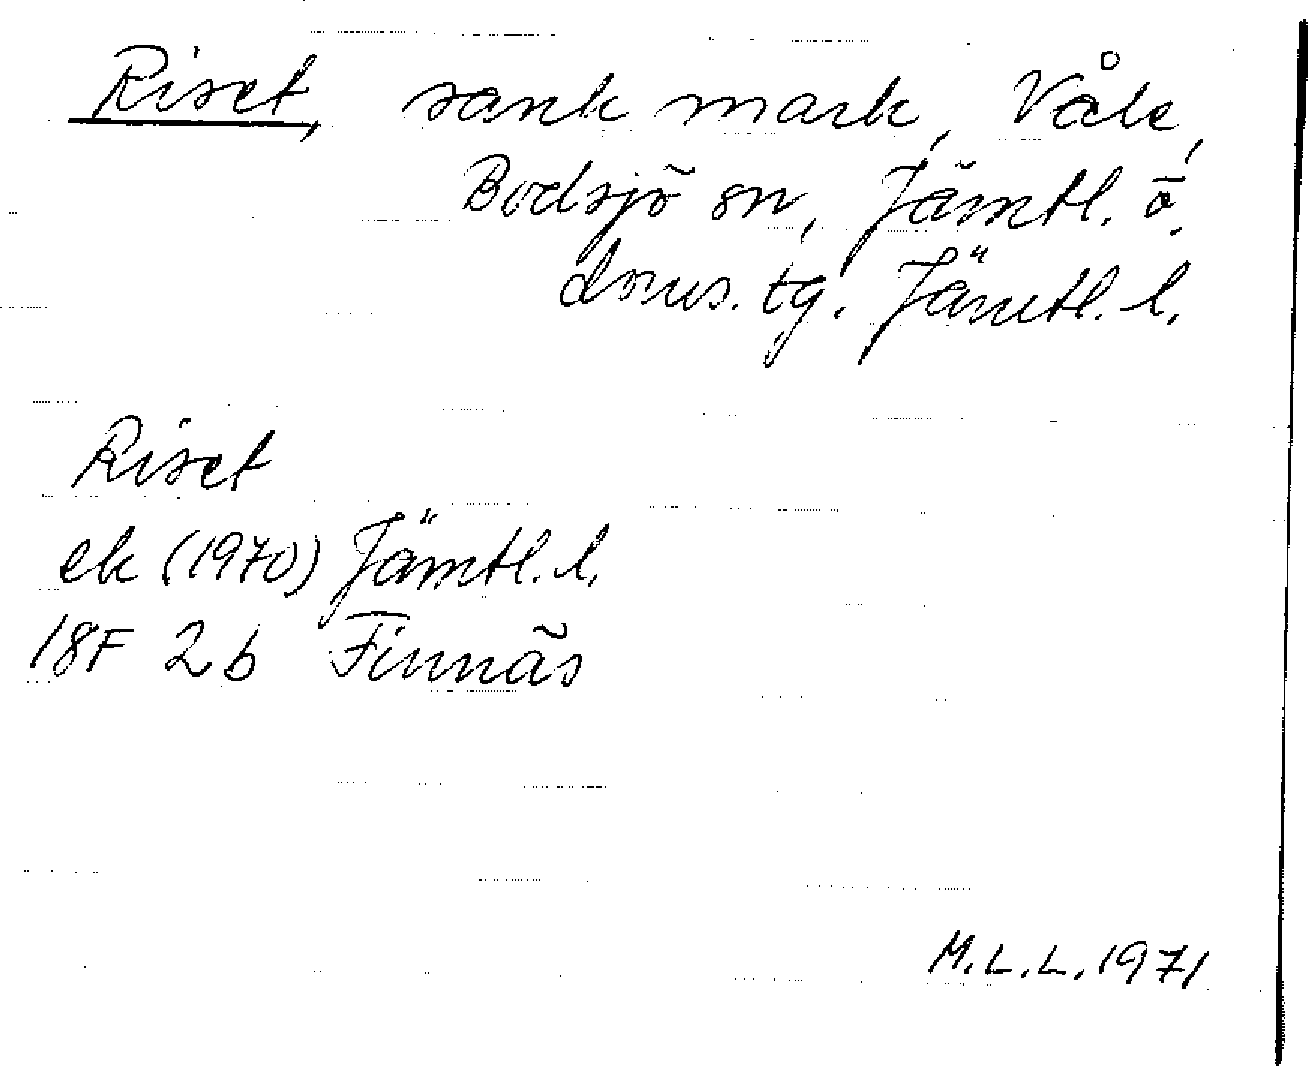 Riset, sank mark, Våle,
Bodsjö sn, Jämtl. ö.
doms. tg. Jämtl. l.
Riset
ek (1970) Jämtl. l.
18F 2b Finnäs
M.L.L. 1971